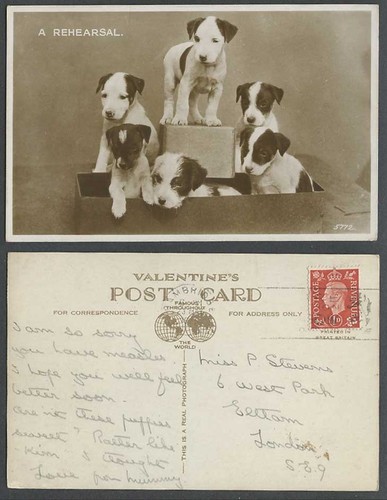 A REHEARSAL.
5772.
VALENTINE'S
POST CARD
FAMOUS
THROUGHOUT
THE
WORLD
FOR CORRESPONDENCE
FOR ADDRESS ONLY
PRINTED IN
GREAT BRITAIN
THIS IS A REAL PHOTOGRAPH
POSTAGE
REVENUE
1D
I am so sorry
you have measles
I hope you will feel
better soon.
Are'nt these puppies
sweet? Rather like
"Kim" I thought
Love from Mummy
Miss P Stevens
6 West Park
Eltham
London
S.E.9